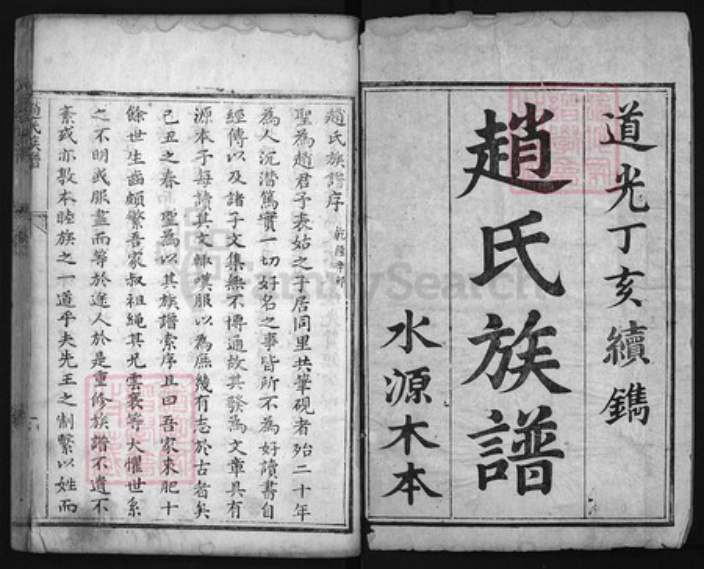 道光丁亥續鐫
趙氏族譜
水源木本
趙氏族譜序 乾隆辛卯
聖為趙君予表姑之子居同里共筆硯者殆二十年
為人沉潛篤實一切好名之事皆所不為好讀書自
經傳以及諸子文集無不博通故其發為文章具有
源本予每讀其文輒嘆服以為庶幾有志於古者矣
己丑之春聖為以其族譜索序且曰吾家來肥十
餘世生齒頗繁吾家叔祖繩其兄雲襄等大懼世系
之不明或服盡而等於途人於是重修族譜不遺不
紊或亦敦本睦族之一道乎夫先王之制繫以姓而
趙氏族譜
FamilySearch